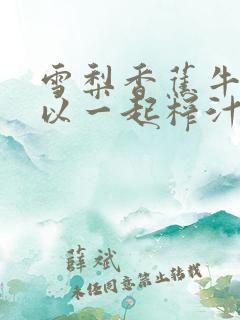 雪梨香蕉牛
以一起榨汁
薛斌
未经同意禁止转载